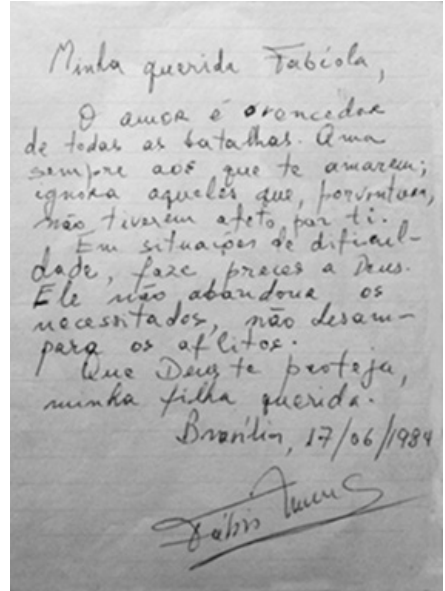 Minha querida Fabíola,
O amor é o vencedor
de todas as batalhas. Ama
sempre aos que te amarem;
ignora aqueles que, porventura,
não tiverem afeto por ti.
Em situações de dificul-
dade, faze preces a Deus.
Ele não abandona os
necessitados, não desam-
para os aflitos.
Que Deus te proteja,
minha filha querida.
Brasília, 17/06/1984
Fábio